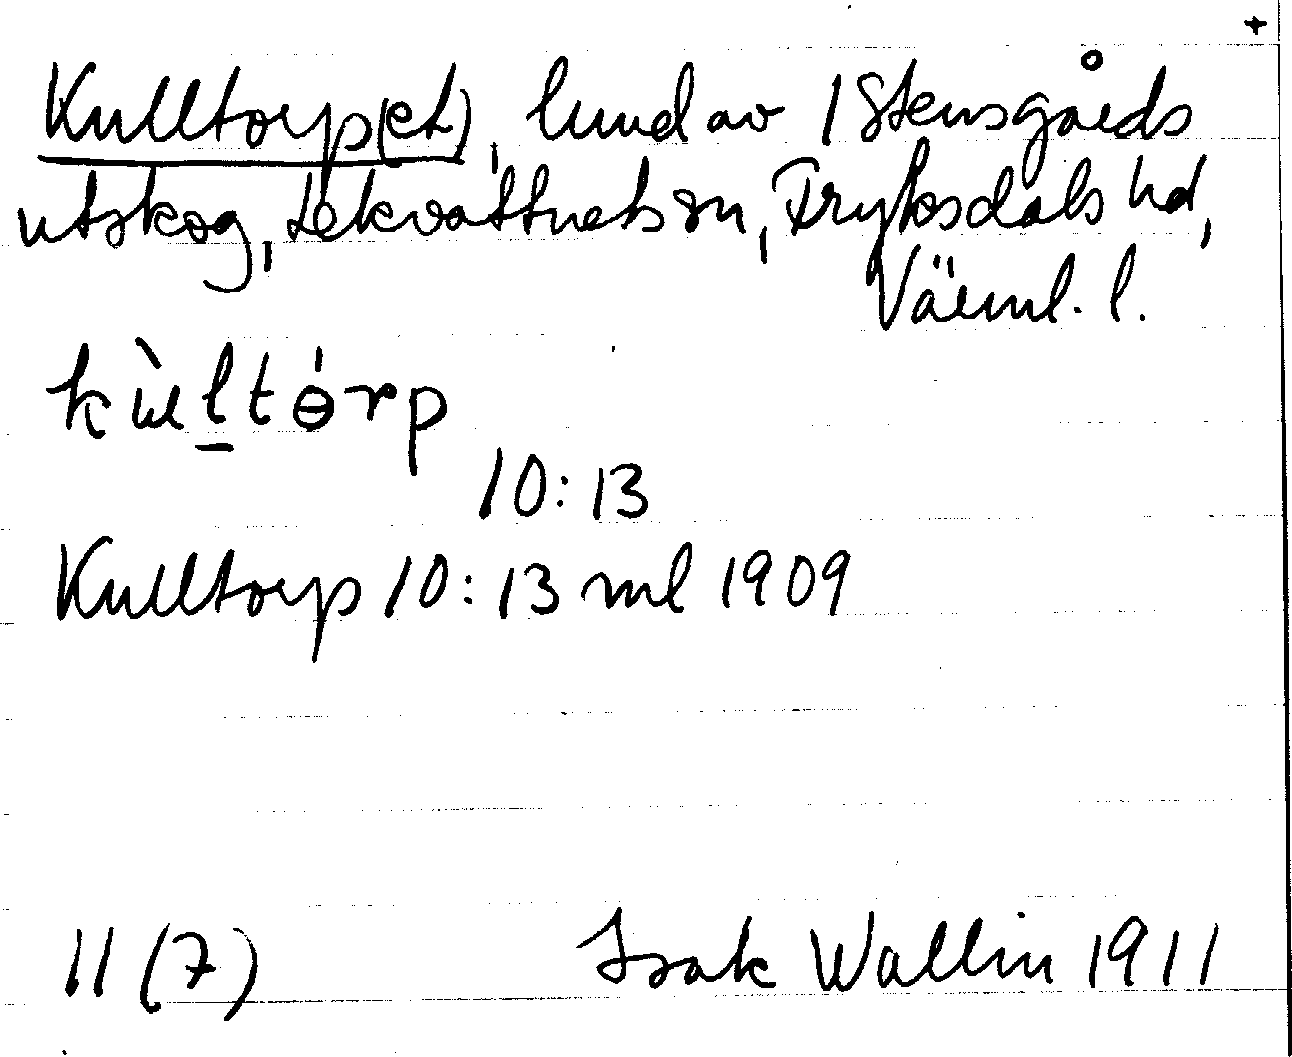 +
Kulltorp(et), lund av 1 Stensgårds
utskog, Lekvattnets sn, Fryksdals hd,
Värml. l.
kùltórp
10:13
Kulltorp 10:13 ml 1909
11 (7) Isak Wallin 1911